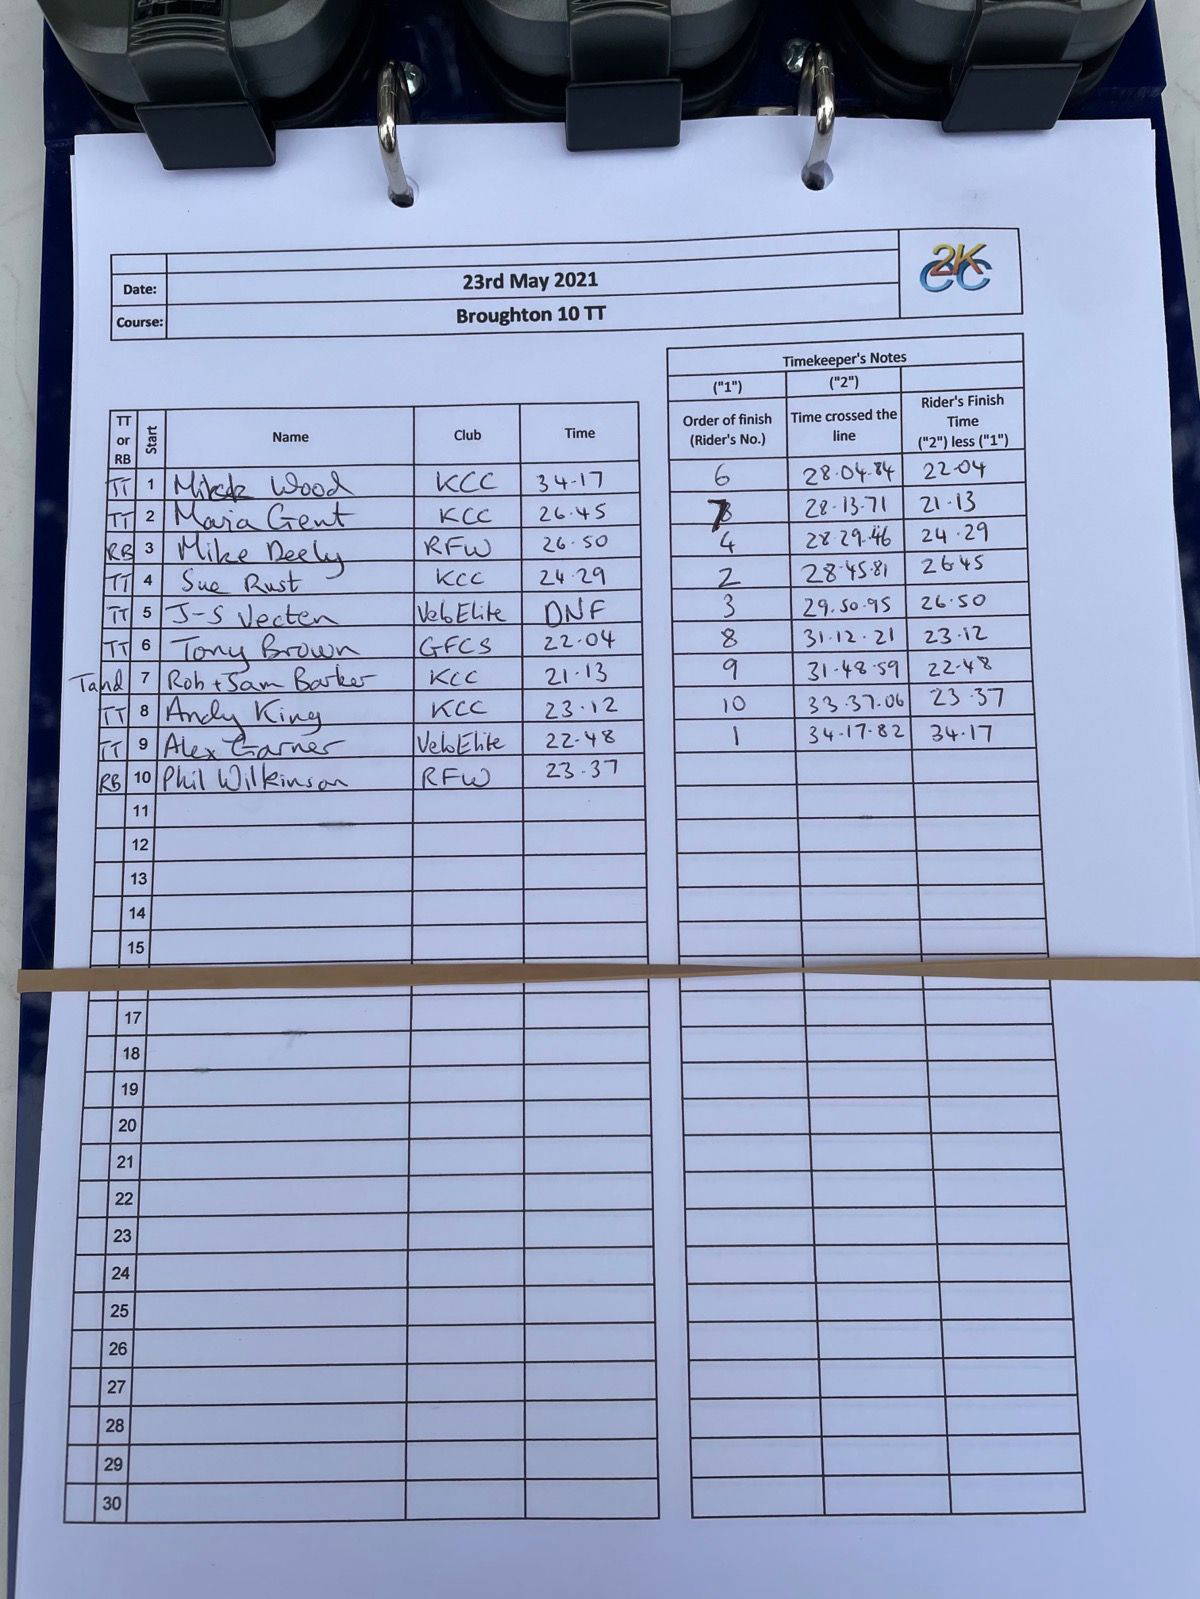 2KCC
Date: 23rd May 2021
Course: Broughton 10 TT
Timekeeper's Notes
("1") ("2")
TT or RB Start Name Club Time Order of finish (Rider's No.) Time crossed the line Rider's Finish Time ("2") less ("1")
TT 1 Wood KCC 34-17 6 28.04.84 22-04
TT 2 Maria Gent KCC 26.45 7 28-13-71 21-13
RB 3 Mike Deely RFW 26-50 4 28-29.46 24-29
TT 4 Sue Rust KCC 24-29 2 28-45-81 26-45
TT 5 J-S Vecten VeloElite DNF 3 29.50.95 26-50
TT 6 Tony Brown GFCS 22-04 8 31-12-21 23-12
Tand 7 Rob + Sam Barker KCC 21-13 9 31-48-59 22-48
TT 8 Andy King KCC 23-12 10 33-37-06 23-37
TT 9 Alex Garner VeloElite 22-48 1 34-17-82 34-17
RB 10 Phil Wilkinson RFW 23-37
11
12
13
14
15
17
18
19
20
21
22
23
24
25
26
27
28
29
30